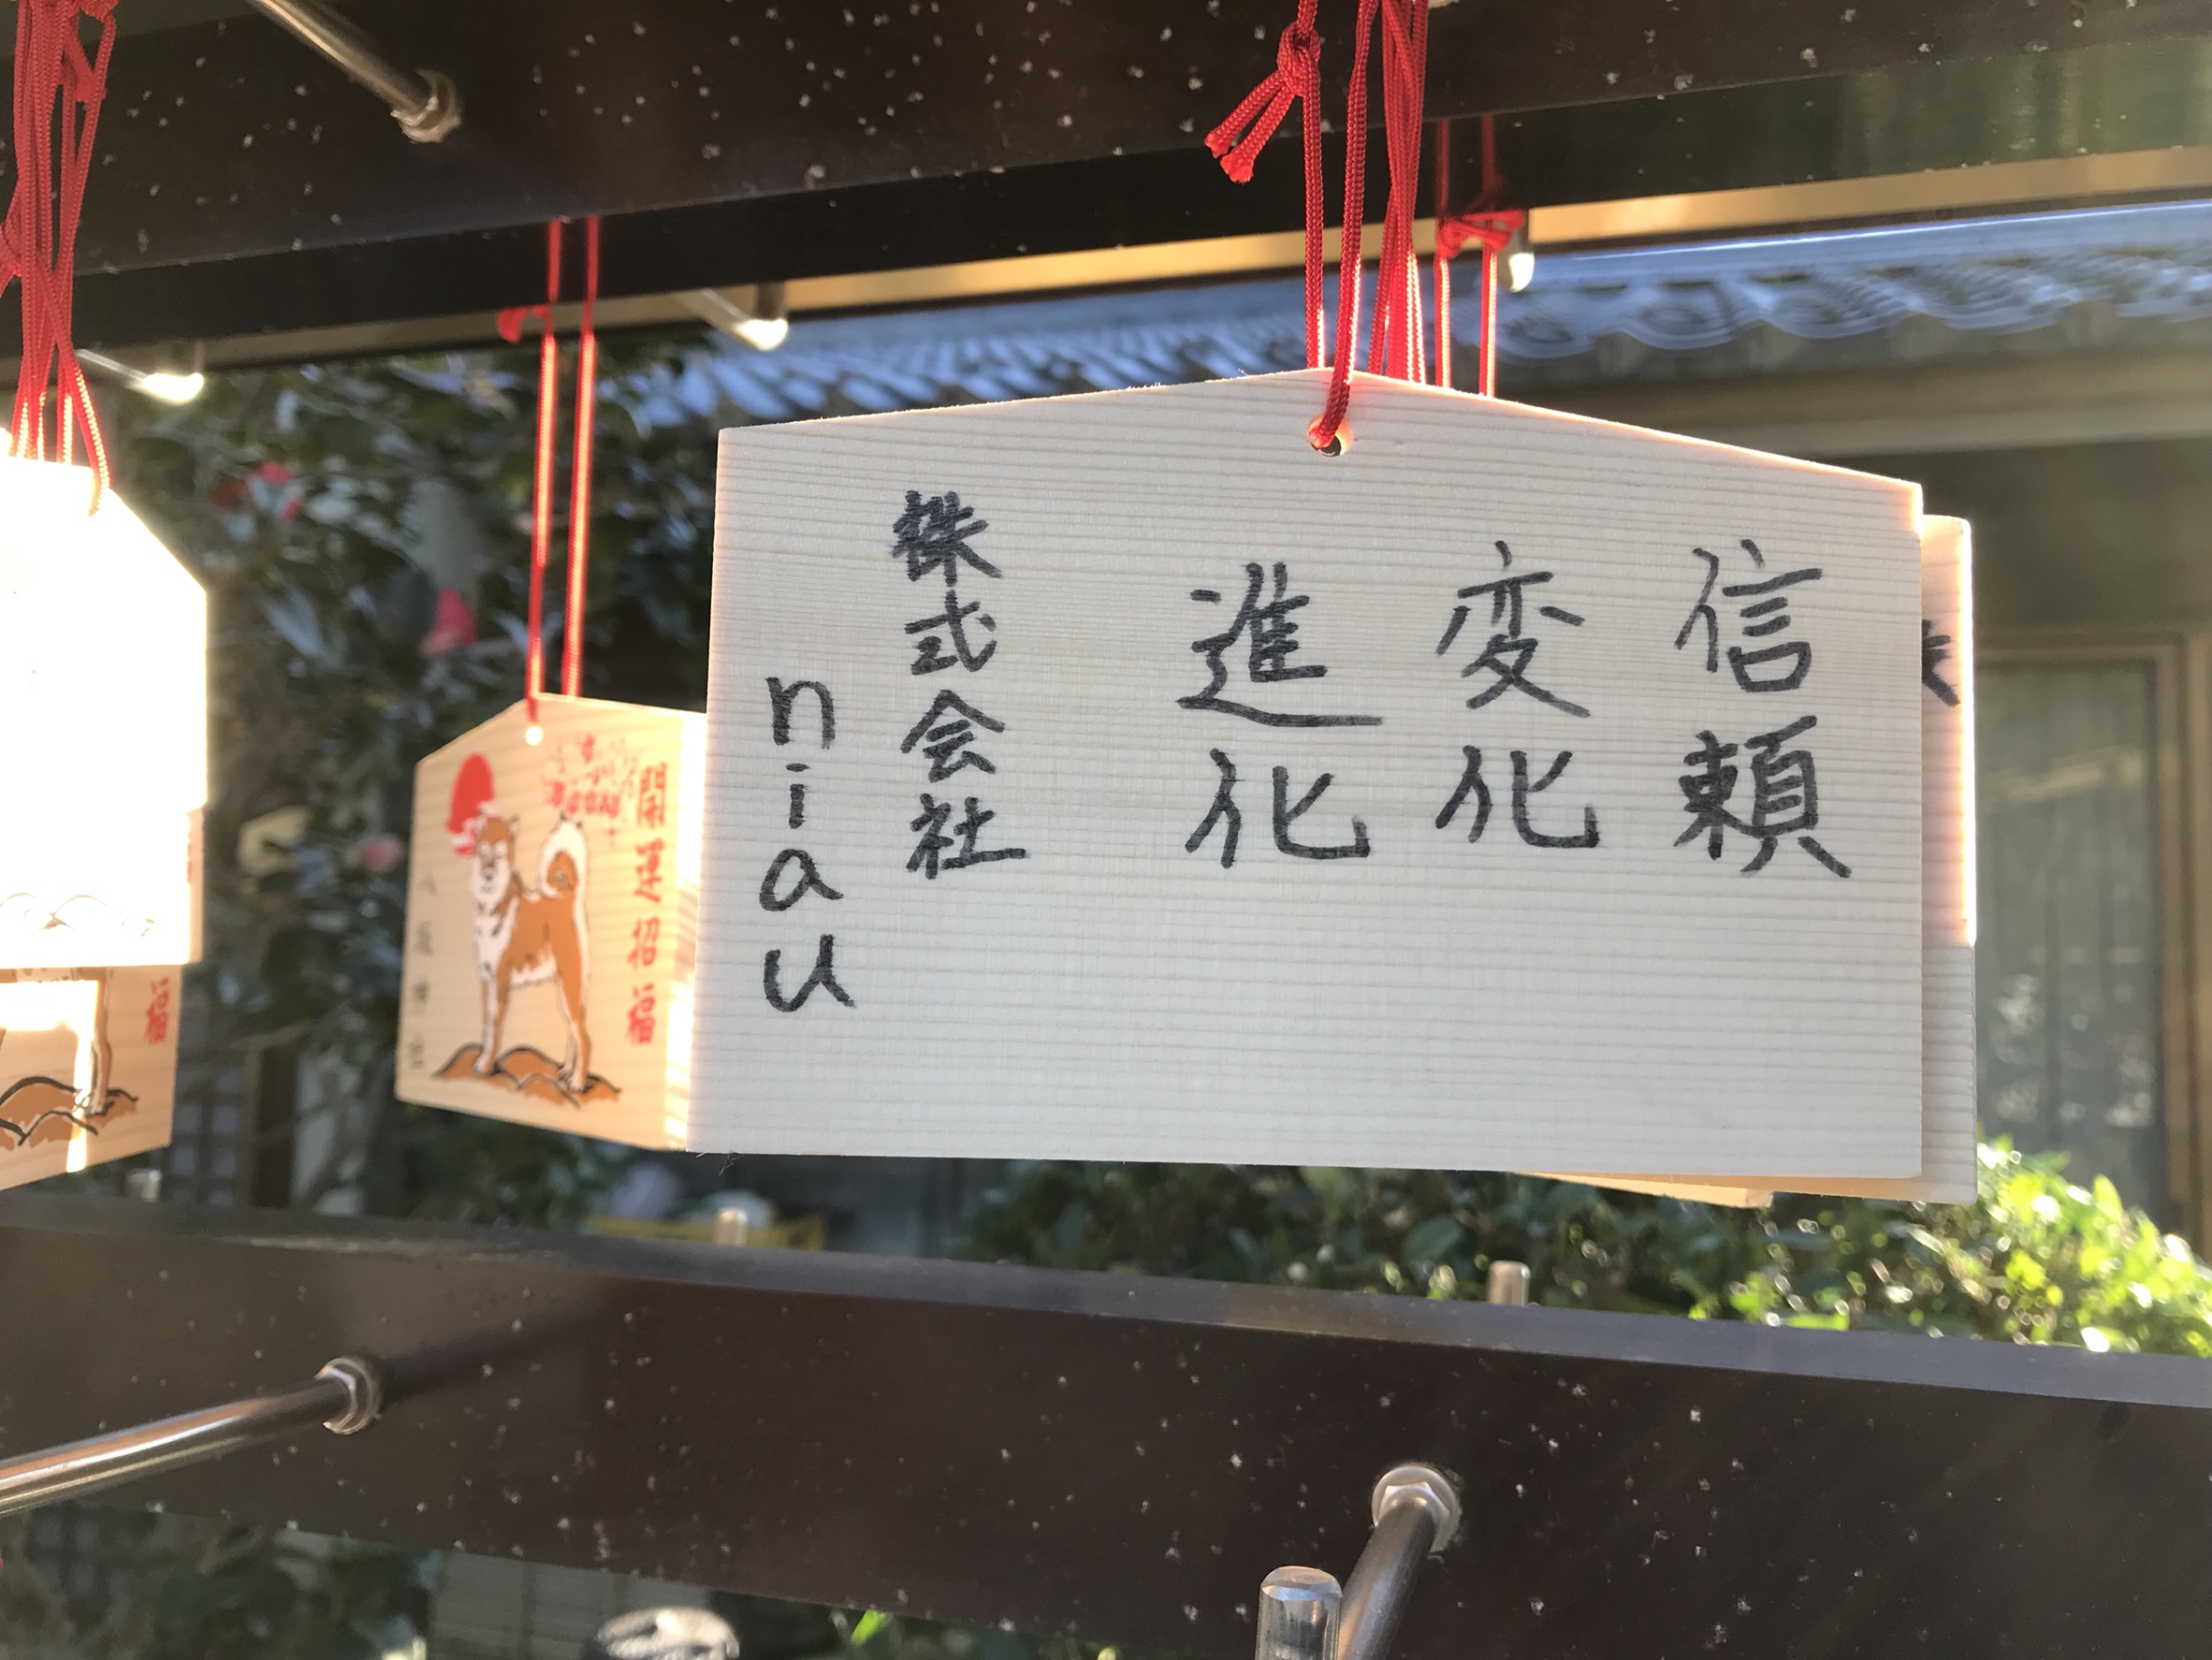 信頼
変化
進化
株式会社
niau
開運招福
福